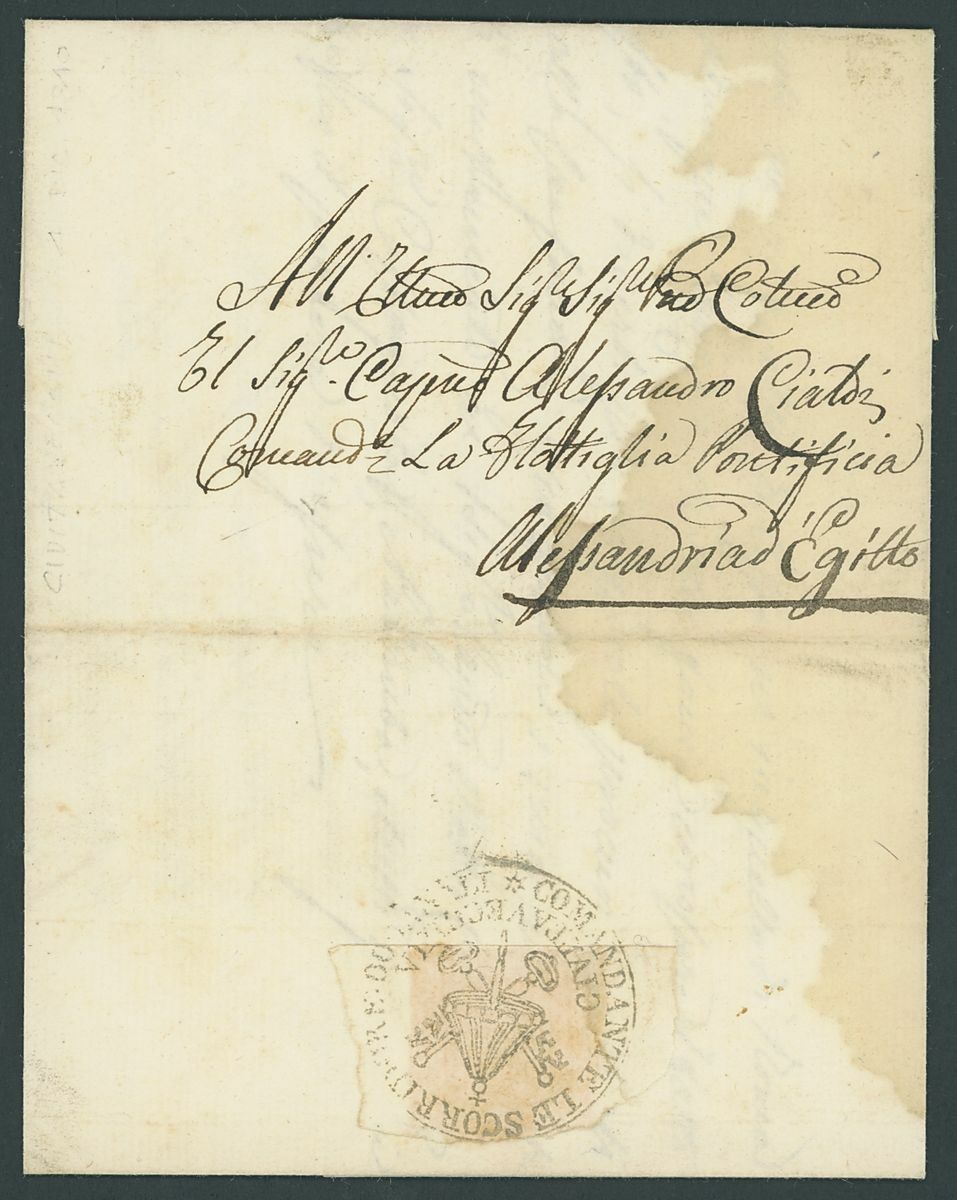 All' Illmo Sig.re Sig.re Pad Colmo
Il Sig.re Capno Alessandro Cialdi
Comand.e La Flottiglia Pontificia
Alessandria d'Egitto
COMANDANTE LE SCORRIDORE DOGANALI *
CIVITAVECCHIA